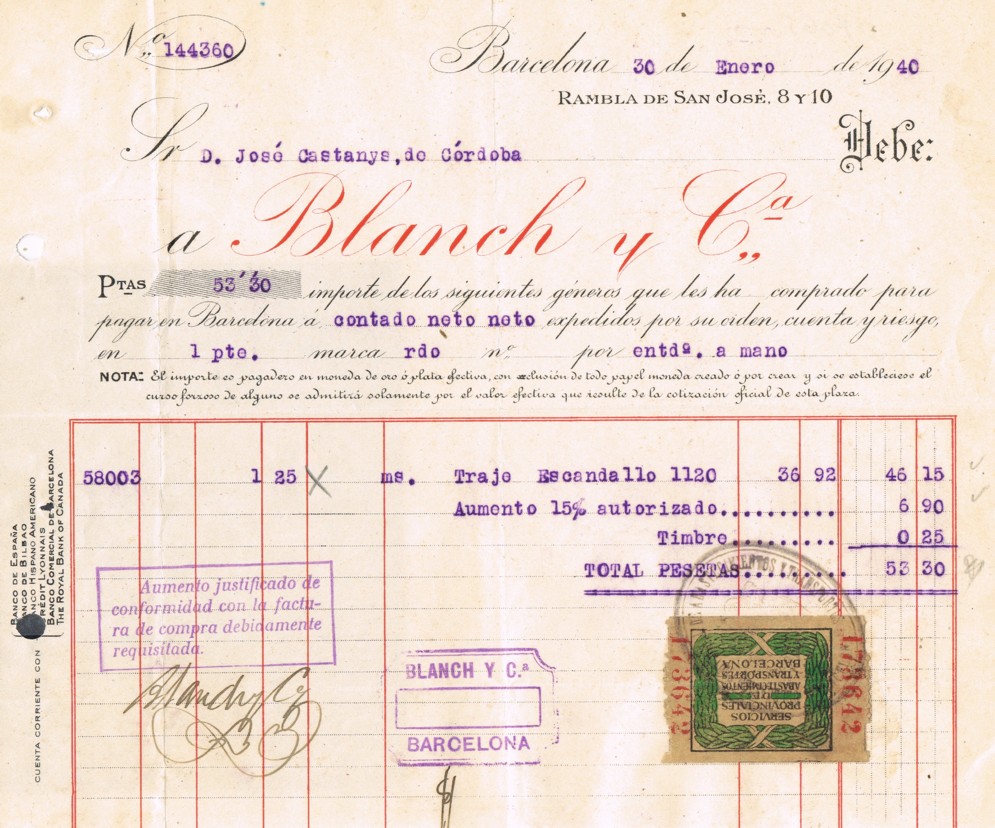 N,,º 144360
Barcelona 30 de Enero de 1940
RAMBLA DE SAN JOSÉ, 8 Y 10
Sr D. José Castanys, de Córdoba
Debe:
a Blanch y Cª,,
PTAS 53'30 importe de los siguientes géneros que les ha comprado para
pagar en Barcelona á contado neto neto expedidos por su orden, cuenta y riesgo,
en 1 pte. marca rdo nº por entdª. a mano
NOTA: El importe es pagadero en moneda de oro ó plata efectiva, con exclusión de todo papel moneda creado ó por crear y si se estableciese el
curso forzoso de alguno se admitirá solamente por el valor efectiva que resulte de la cotización oficial de esta plaza.
58003 1 25 X ms. Traje Escandallo 1120 36 92 46 15
Aumento 15% autorizado.......... 6 90
Timbre......... 0 25
TOTAL PESETAS......... 53 30
CUENTA CORRIENTE CON
BANCO DE ESPAÑA
BANCO DE BILBAO
BANCO HISPANO AMERICANO
CRÉDIT LYONNAIS
BANCO COMERCIAL DE BARCELONA
THE ROYAL BANK OF CANADA
Aumento justificado de
conformidad con la factu-
ra de compra debidamente
requisitada.
Blanch y Cª
BLANCH Y C.ª
BARCELONA
DE ABASTECIMIENTOS Y TRANSPORTES
173642
SERVICIOS
PROVINCIALES
DE
ABASTECIMIENTOS
Y TRANSPORTES
BARCELONA
173642